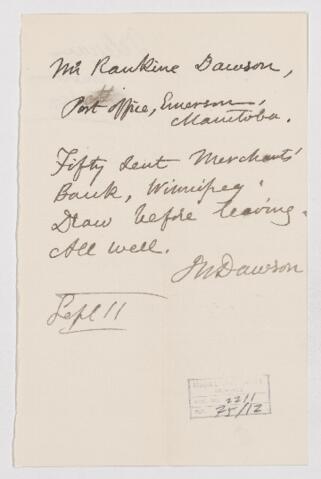 Mr Rankine Dawson,
Post office, Emerson,
Manitoba.
Fifty sent Merchants'
Bank, Winnipeg.
Draw before leaving.
All well.
JWDawson
Sept 11
2211
25/12